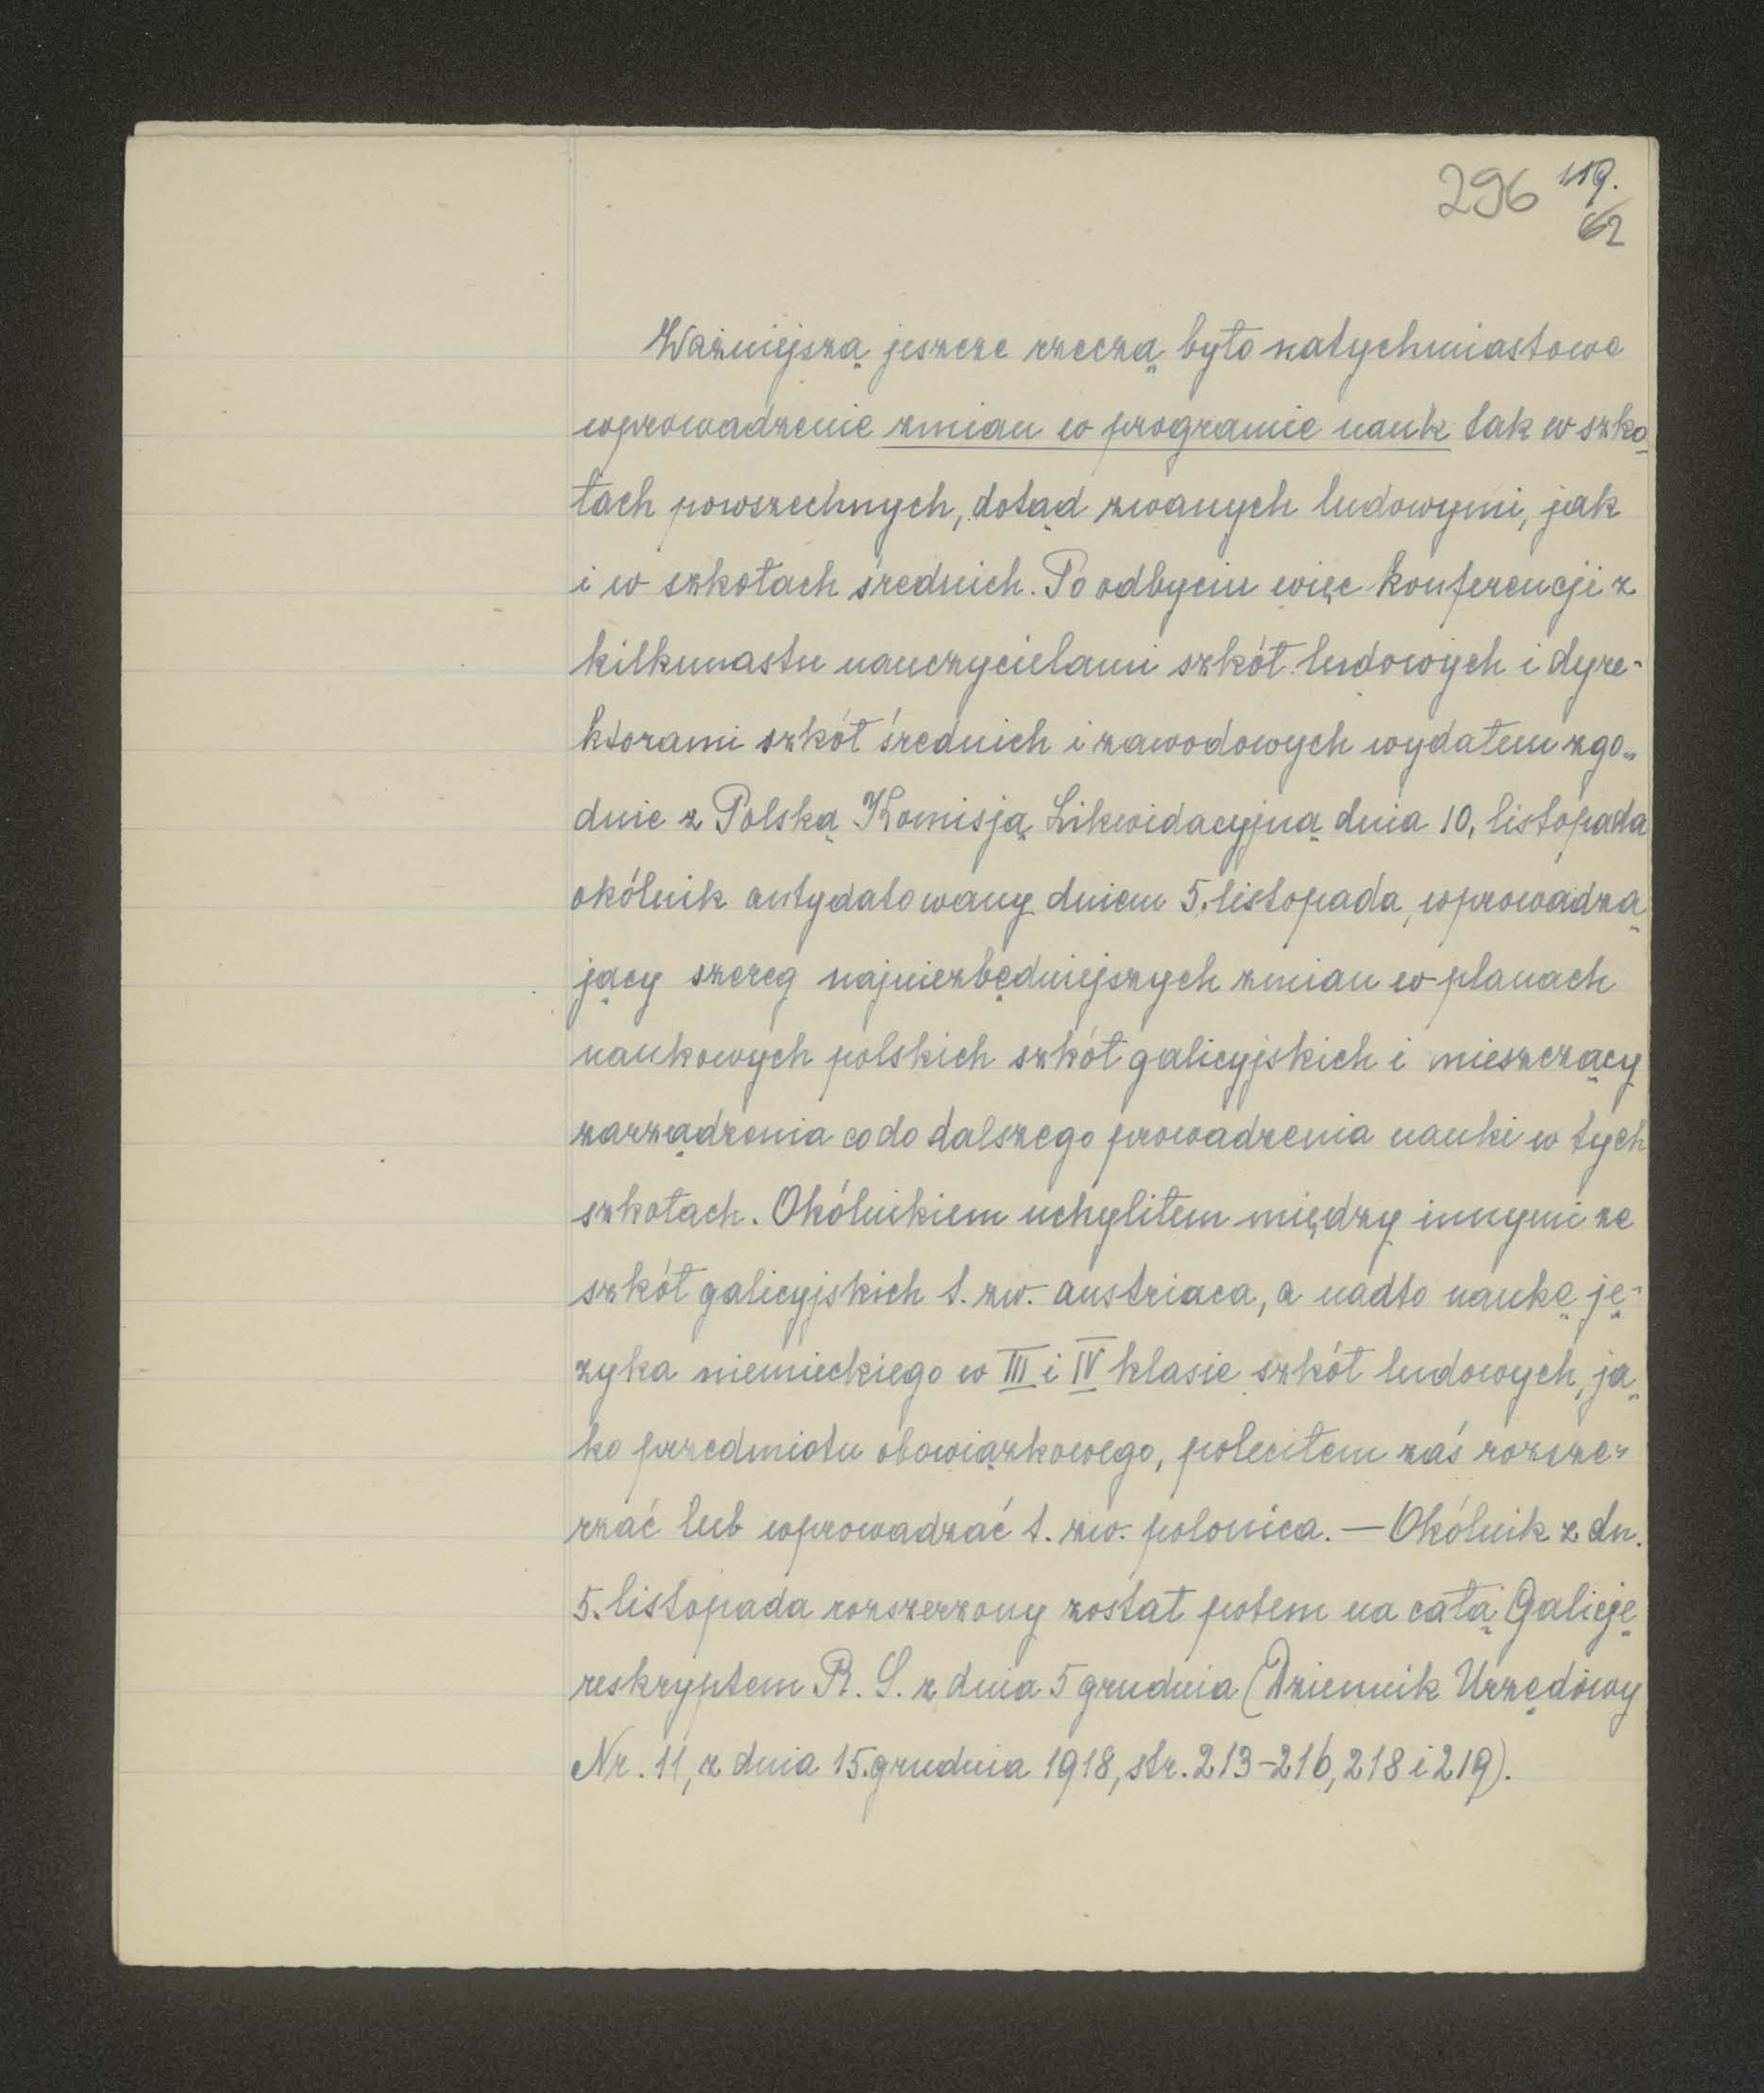 296 119.
62
Ważniejszą jeszcze rzeczą było natychmiastowe
wprowadzenie zmian w programie nauk tak w szko
łach powszechnych, dotąd zwanych ludowymi, jak
i w szkołach średnich. Po odbyciu więc konferencji z
kilkunastu nauczycielami szkół ludowych i dyre-
ktorami szkół średnich i zawodowych wydałem zgo-
dnie z Polską Komisją Likwidacyjną dnia 10. listopada
okólnik antydatowany dniem 5. listopada, wprowadza
jący szereg najniezbędniejszych zmian w planach
naukowych polskich szkół galicyjskich i mieszczący
zarządzenia co do dalszego prowadzenia nauki w tych
szkołach. Okólnikiem uchyliłem między innymi ze
szkół galicyjskich t. zw. austriaca, a nadto naukę ję-
zyka niemieckiego w III i IV klasie szkół ludowych, ja-
ko przedmiotu obowiązkowego, poleciłem zaś rozsze-
rzać lub wprowadzać t. zw. polonica. — Okólnik z dn.
5. listopada rozszerzony został potem na całą Galicję
reskryptem R. S. z dnia 5 grudnia (Dziennik Urzędowy
Nr. 11, z dnia 15. grudnia 1918, str. 213-216, 218 i 219).